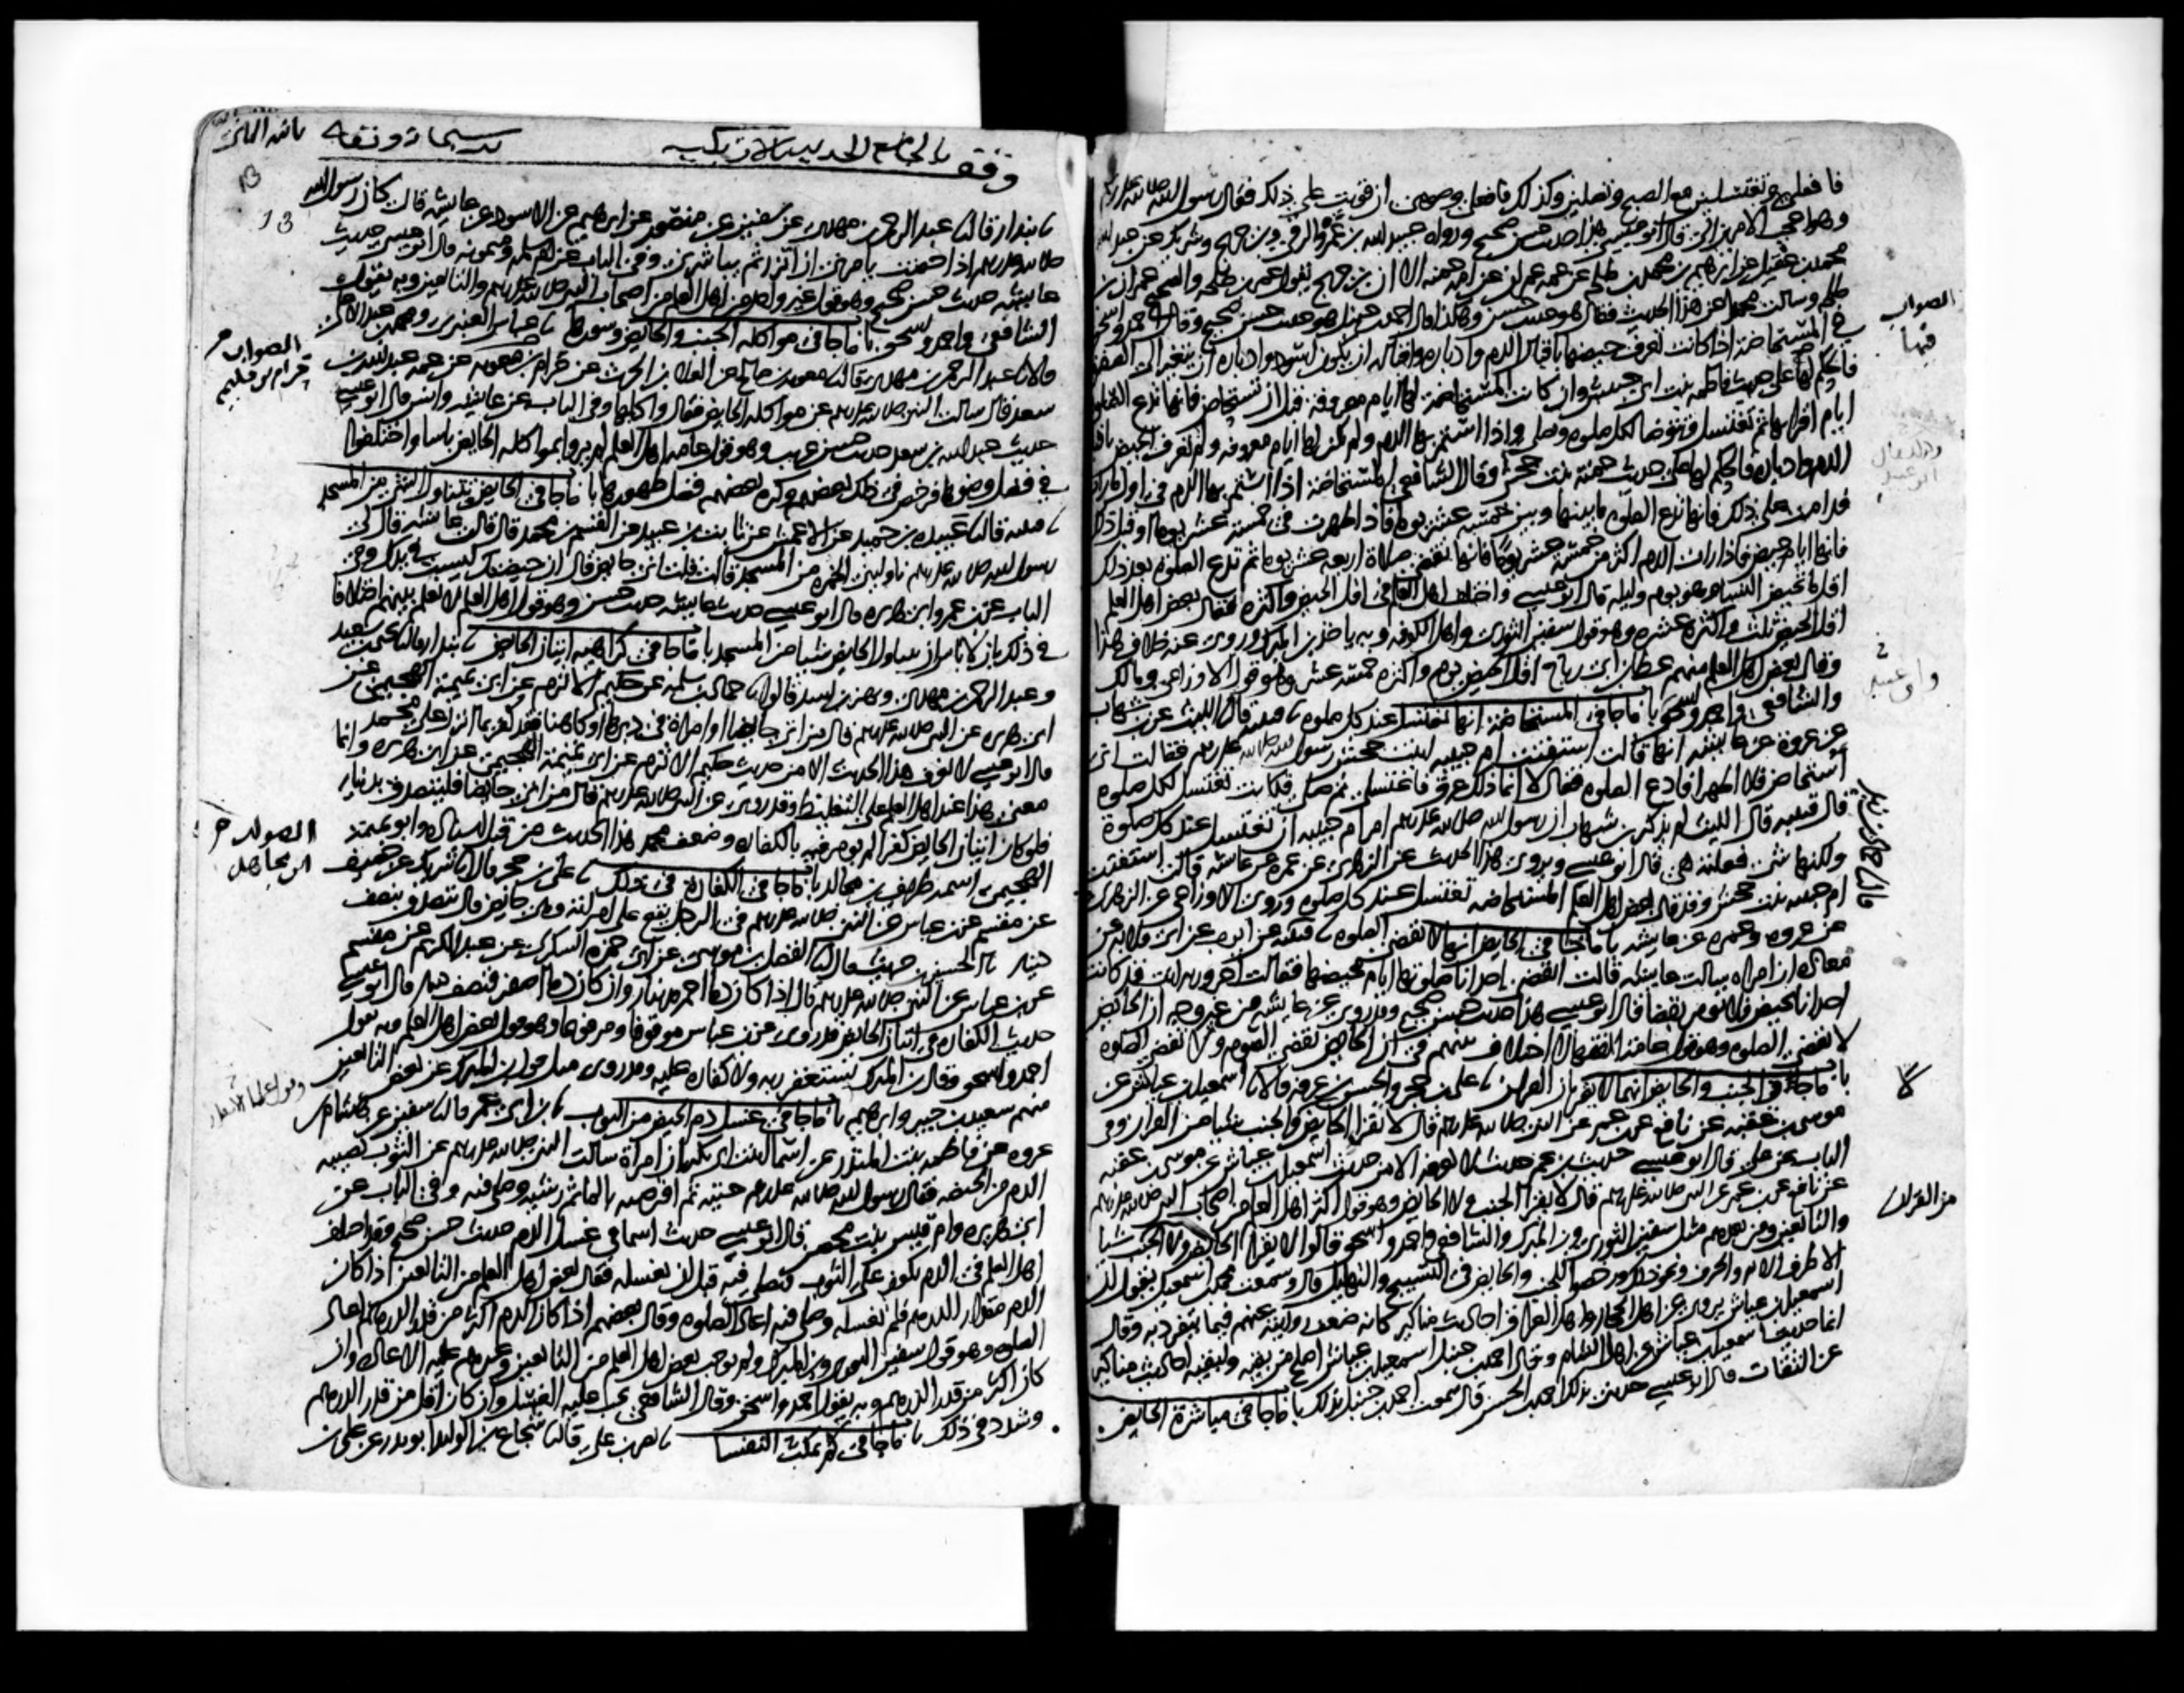 فافعلي وتغتسلين مع الصبح وتصلين وكذلك فافعلي وصومي ان قويت على ذلك فقال رسول الله صلى الله عليه وسلم
وهو اعجب الامرين الي قال ابو عيسى هذا حديث حسن صحيح ورواه عبيد الله بن عمرو الرقي وابن جريج وشريك عن عبد الله
محمد بن عقيل عن ابرهيم بن محمد بن طلحة عن عمه عمران عن امه حمنة الا ان بن جريج يقول عمر بن طلحة والصحيح عمران بن
طلحة وسالت محمدا عن هذا الحديث فقال هو حديث حسن وهكذا قال احمد بن حنبل هو حديث حسن صحيح وقال احمد واسحق
في المستحاضة اذا كانت تعرف حيضها باقبال الدم وادباره واقباله ان يكون اسود وادباره ان يتغير الى الصفرة
فالحكم لها على حديث فاطمة بنت ابي حبيش وان كانت المستحاضة لها ايام معروفة قبل ان تستحاض فانها تدع الصلوة
ايام اقرائها ثم تغتسل وتتوضا لكل صلوة وتصلي واذا استمر بها الدم ولم يكن لها ايام معروفة ولم تعرف الحيض باقبال
الدم وادباره فالحكم لها على حديث حمنة بنت جحش وقال الشافعي المستحاضة اذا استمر بها الدم في اول ما رات
فدامت على ذلك فانها تدع الصلوة ما بينها وبين خمسة عشر يوما فاذا طهرت في خمسة عشر يوما او قبل ذلك
فانها ايام حيض فاذا رات الدم اكثر من خمسة عشر يوما فانها تقضي صلاة اربعة عشر يوما ثم تدع الصلوة بعد ذلك
اقل ما تحيض النساء وهو يوم وليلة قال ابو عيسى واختلف اهل العلم في اقل الحيض واكثره فقال بعض اهل العلم
اقل الحيض ثلث واكثره عشرة وهو قول سفين الثوري واهل الكوفة وبه ياخذ بن المبرك وروي عنه خلاف هذا
وقال بعض اهل العلم منهم عطا بن ابي رباح اقل الحيض يوم واكثره خمسة عشر وهو قول الاوزاعي ومالك
والشافعي واحمد واسحق باب ما جا في المستحاضة انها تغتسل عند كل صلوة قتيبة قال الليث عن بن شهاب
عن عروة عن عايشة انها قالت استفتت ام حبيبة ابنت جحش رسول الله صلى الله عليه وسلم فقالت اني
استحاض فلا اطهر افادع الصلوة فقال لا انما ذلك عرق فاغتسلي ثم صلي فكانت تغتسل لكل صلوة
قال قتيبة قال الليث لم يذكر بن شهاب ان رسول الله صلى الله عليه وسلم امر ام حبيبة ان تغتسل عند كل صلوة
ولكنها شي فعلته هي قال ابو عيسى ويروى هذا الحديث عن الزهري عن عمرة عن عايشة قالت استفتت
ام حبيبة بنت جحش وقد قال بعض اهل العلم المستحاضة تغتسل عند كل صلوة وروى الاوزاعي عن الزهري
عن عروة وعمرة عن عايشة باب ما جا في الحايض انها لا تقضي الصلوة قتيبة عن ايوب عن ابي قلابة عن
معاذة ان امراة سالت عايشة قالت اتقضي احدانا صلوتها ايام محيضها فقالت احرورية انت قد كانت
احدانا تحيض فلا تومر بقضا قال ابو عيسى هذا حديث حسن صحيح وقد روي عن عايشة من غير وجه ان الحايض
لا تقضي الصلوة وهو قول عامة الفقها لا اختلاف بينهم في ان الحايض تقضي الصوم ولا تقضي الصلوة
باب ما جا في الجنب والحايض انهما لا يقران القران علي بن حجر والحسن بن عرفة قالا اسمعيل بن عياش عن
موسى بن عقبة عن نافع عن بن عمر عن النبي صلى الله عليه وسلم قال لا تقرا الحايض ولا الجنب شيا من القران وفي
الباب عن علي قال ابو عيسى حديث بن عمر حديث لا نعرفه الا من حديث اسمعيل بن عياش عن موسى بن عقبة
عن نافع عن بن عمر عن النبي صلى الله عليه وسلم قال لا يقرا الجنب ولا الحايض وهو قول اكثر اهل العلم من اصحاب النبي صلى الله عليه وسلم
والتابعين ومن بعدهم مثل سفين الثوري وبن المبرك والشافعي واحمد واسحق قالوا لا تقرا الحايض ولا الجنب شيا
الا طرف الاية والحرف ونحو ذلك ورخصوا للجنب والحايض في التسبيح والتهليل قال وسمعت محمد بن اسمعيل يقول ان
اسمعيل بن عياش يروي عن اهل الحجاز واهل العراق احاديث مناكير كانه ضعف روايته عنهم فيما يتفرد به وقال
انما حديث اسمعيل بن عياش عن اهل الشام وقال احمد بن حنبل اسمعيل بن عياش اصلح من بقية ولبقية احاديث مناكير
عن الثقات قال ابو عيسى حدثني بذلك احمد بن الحسن قال سمعت احمد بن حنبل بذلك باب ما جا في مباشرة الحايض
الصواب
فيها
من القران
وقف بالجامع
بندار قال عبد الرحمن بن مهدي عن سفين عن منصور عن ابرهيم عن الاسود عن عايشة قالت كان رسول الله
صلى الله عليه وسلم اذا حضت يامرني ان اتزر ثم يباشرني وفي الباب عن ام سلمة وميمونة قال ابو عيسى حديث
عايشة حديث حسن صحيح وهو قول غير واحد من اهل العلم من اصحاب النبي صلى الله عليه وسلم والتابعين وبه يقول
الشافعي واحمد واسحق باب ما جا في مواكلة الجنب والحايض وسورها عباس العنبري ومحمد بن عبد الاعلى
قالا عبد الرحمن بن مهدي قال معوية بن صالح عن العلا بن الحرث عن حرام بن معوية عن عمه عبد الله بن
سعد قال سالت النبي صلى الله عليه وسلم عن مواكلة الحايض فقال واكلها وفي الباب عن عايشة وانس قال ابو عيسى
حديث عبد الله بن سعد حديث حسن غريب وهو قول عامة اهل العلم لم يروا بمواكلة الحايض باسا واختلفوا
في فضل وضوها فرخص في ذلك بعضهم وكره بعضهم فضل طهورها باب ما جا في الحايض تتناول الشي من المسجد
قتيبة قال عبيدة بن حميد عن الاعمش عن ثابت بن عبيد عن القسم بن محمد قال قالت عايشة قال لي
رسول الله صلى الله عليه وسلم ناوليني الخمرة من المسجد قالت قلت اني حايض قال ان حيضتك ليست في يدك وفي
الباب عن بن عمر وابي هريرة قال ابو عيسى حديث عايشة حديث حسن وهو قول اهل العلم لا نعلم بينهم اختلافا
في ذلك بان لا باس ان تتناول الحايض شيا من المسجد باب ما جا في كراهية اتيان الحايض بندار قال يحيى بن سعيد
وعبد الرحمن بن مهدي وبهز بن اسد قالوا حماد بن سلمة عن حكيم الاثرم عن ابي تميمة الهجيمي عن
ابي هريرة عن النبي صلى الله عليه وسلم قال من اتى حايضا او امراة في دبرها او كاهنا فقد كفر بما انزل على محمد
قال ابو عيسى لا نعرف هذا الحديث الا من حديث حكيم الاثرم عن ابي تميمة الهجيمي عن ابي هريرة وانما
معنى هذا عند اهل العلم على التغليظ وقد روي عن النبي صلى الله عليه وسلم قال من اتى حايضا فليتصدق بدينار
فلو كان اتيان الحايض كفرا لم يومر فيه بالكفارة وضعف محمد هذا الحديث من قبل اسناده وابو تميمة
الهجيمي اسمه طريف بن مجالد باب ما جا في الكفارة في ذلك علي بن حجر قال شريك عن خصيف
عن مقسم عن بن عباس عن النبي صلى الله عليه وسلم في الرجل يقع على امراته وهي حايض قال يتصدق بنصف
دينار الحسين بن حريث قال الفضل بن موسى عن ابي حمزة السكري عن عبد الكريم عن مقسم
عن بن عباس عن النبي صلى الله عليه وسلم قال اذا كان دما احمر فدينار وان كان دما اصفر فنصف دينار قال ابو عيسى
حديث الكفارة في اتيان الحايض قد روي عن بن عباس موقوفا ومرفوعا وهو قول بعض اهل العلم وبه يقول
احمد واسحق وقال بن المبرك يستغفر ربه ولا كفارة عليه وقد روي مثل قول بن المبرك عن بعض التابعين
منهم سعيد بن جبير وابرهيم باب ما جا في غسل دم الحيض من الثوب بن ابي عمر قال سفين عن هشام بن
عروة عن فاطمة بنت المنذر عن اسما ابنت ابي بكر ان امراة سالت النبي صلى الله عليه وسلم عن الثوب يصيبه
الدم من الحيضة فقال رسول الله صلى الله عليه وسلم حتيه ثم اقرصيه بالما ثم رشيه وصلي فيه وفي الباب عن
ابي هريرة وام قيس بنت محصن قال ابو عيسى حديث اسما في غسل الدم حديث حسن صحيح وقد اختلف
اهل العلم في الدم يكون على الثوب فيصلي فيه قبل ان يغسله فقال بعض اهل العلم من التابعين اذا كان
الدم مقدار الدرهم فلم يغسله وصلى فيه اعاد الصلوة وقال بعضهم اذا كان الدم اكثر من قدر الدرهم اعاد
الصلوة وهو قول سفين الثوري وبن المبرك ولم يوجب بعض اهل العلم من التابعين وغيرهم عليه الاعادة وان
كان اكثر من قدر الدرهم وبه يقول احمد واسحق وقال الشافعي يجب عليه الغسل وان كان اقل من قدر الدرهم
وشدد في ذلك باب ما جا في كم تمكث النفسا نصر بن علي قال شجاع بن الوليد ابو بدر عن علي بن
13
الصواب
حرام بن حكيم
الصواب
ابن مجاهد